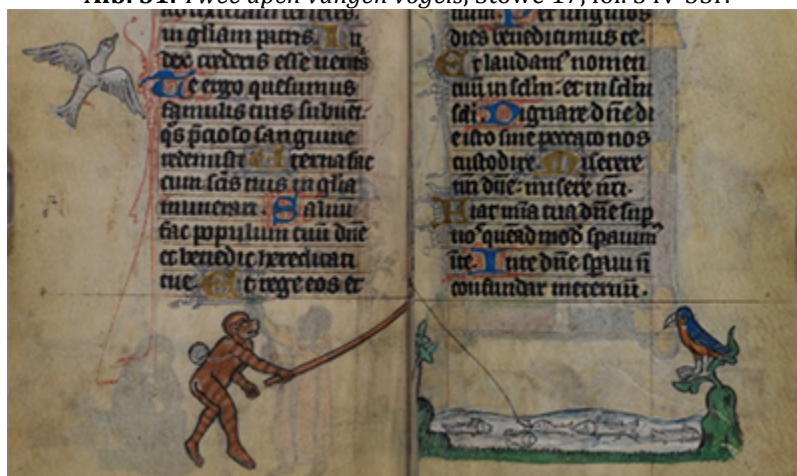 Twee apen vangen vogels, Stowe 17, fol. 54v-55r.
in gliam patris. Iu
dex crederis esse
Te ergo quesumus
famulis tuis subuēt.
qs p̄cioso sanguine
redemisti Eterna fac
cum scīs tuis in glīa
munerari. Saluū
fac populum tuū dn̄e
et benedic hereditati
tue. Et rege eos et
Per singulos
dies benedicimus te.
Et laudamꝰ nomen
tuū in sc̄lm. et in sc̄lm
sc̄li. Dignare dn̄e di
e isto sine peccato nos
custodire. Miserere
nr̄i dn̄e. misere nr̄i.
Fiat mīa tua dn̄e sup
In te dn̄e
confundar in eternū.